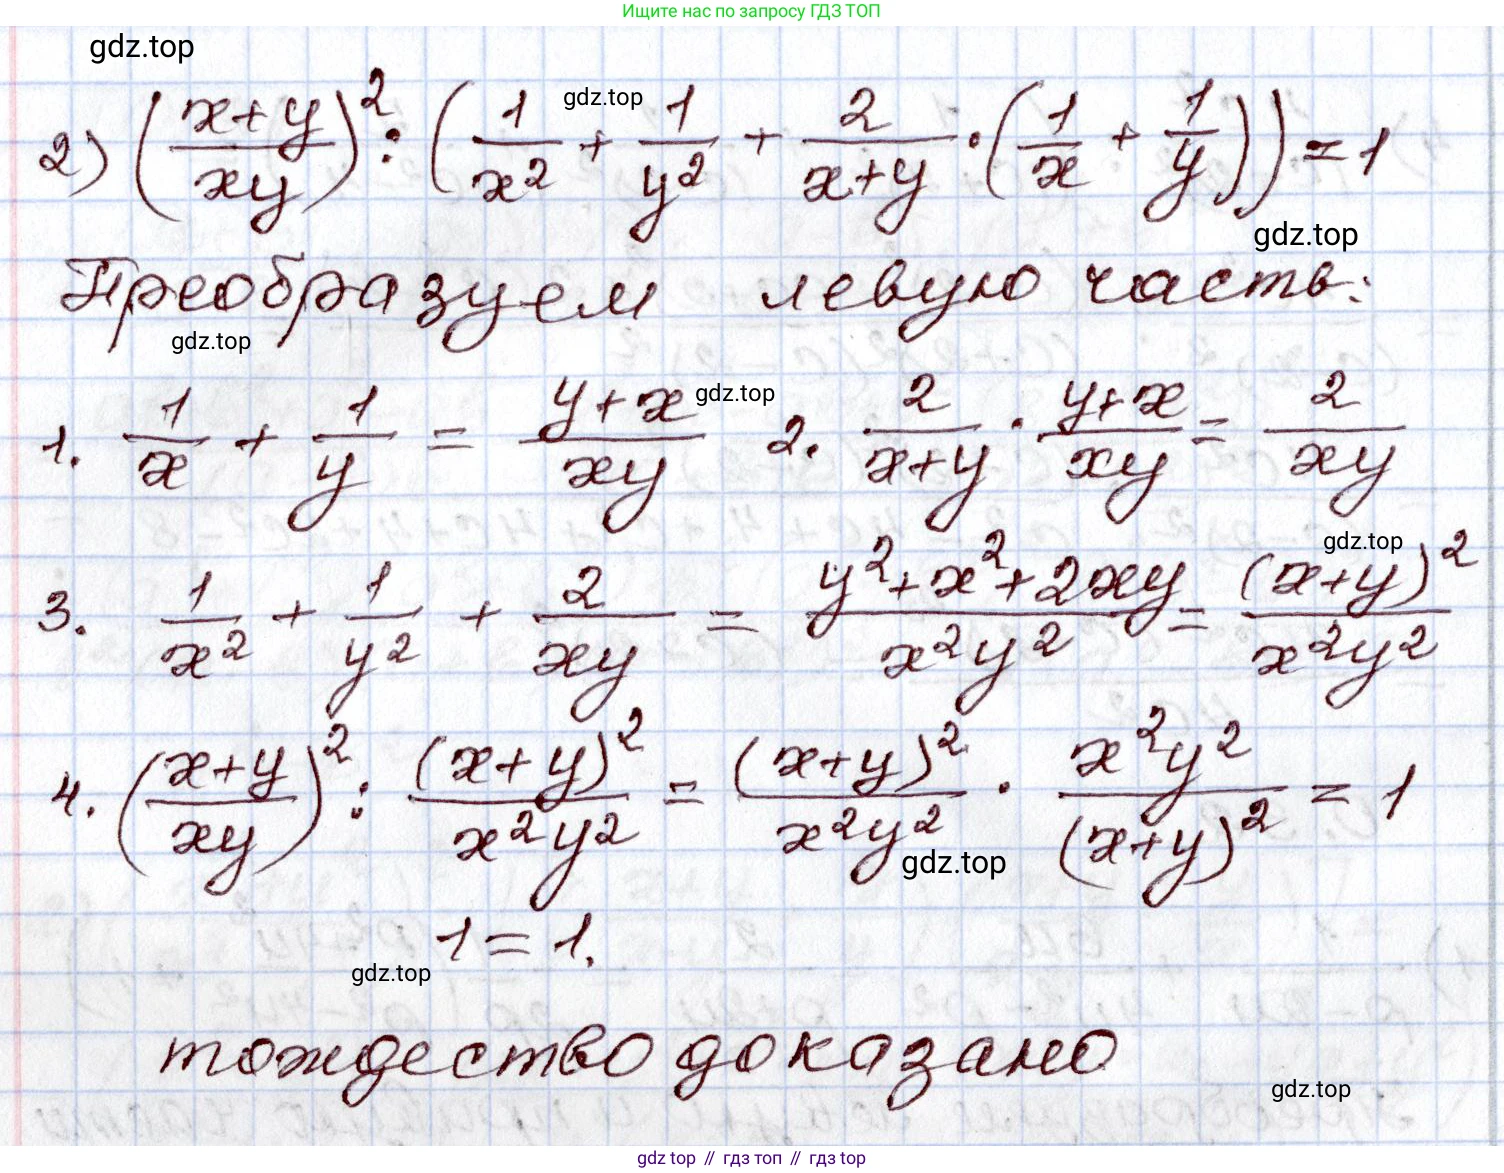 Ищите нас по запросу ГДЗ ТОП
gdz.top
2) ((x+y)/(xy))² : (1/x² + 1/y² + 2/(x+y) · (1/x + 1/y)) = 1
gdz.top
gdz.top
Преобразуем левую часть:
gdz.top
1. 1/x + 1/y = (y+x)/(xy) gdz.top 2. 2/(x+y) · (y+x)/(xy) = 2/(xy)
gdz.top
3. 1/x² + 1/y² + 2/(xy) = (y²+x²+2xy)/(x²y²) = (x+y)²/(x²y²)
4. ((x+y)/(xy))² : (x+y)²/(x²y²) = (x+y)²/(x²y²) · x²y²/(x+y)² = 1
gdz.top
1 = 1.
gdz.top
тождество доказано
gdz.top
gdz top // гдз топ // гдз top